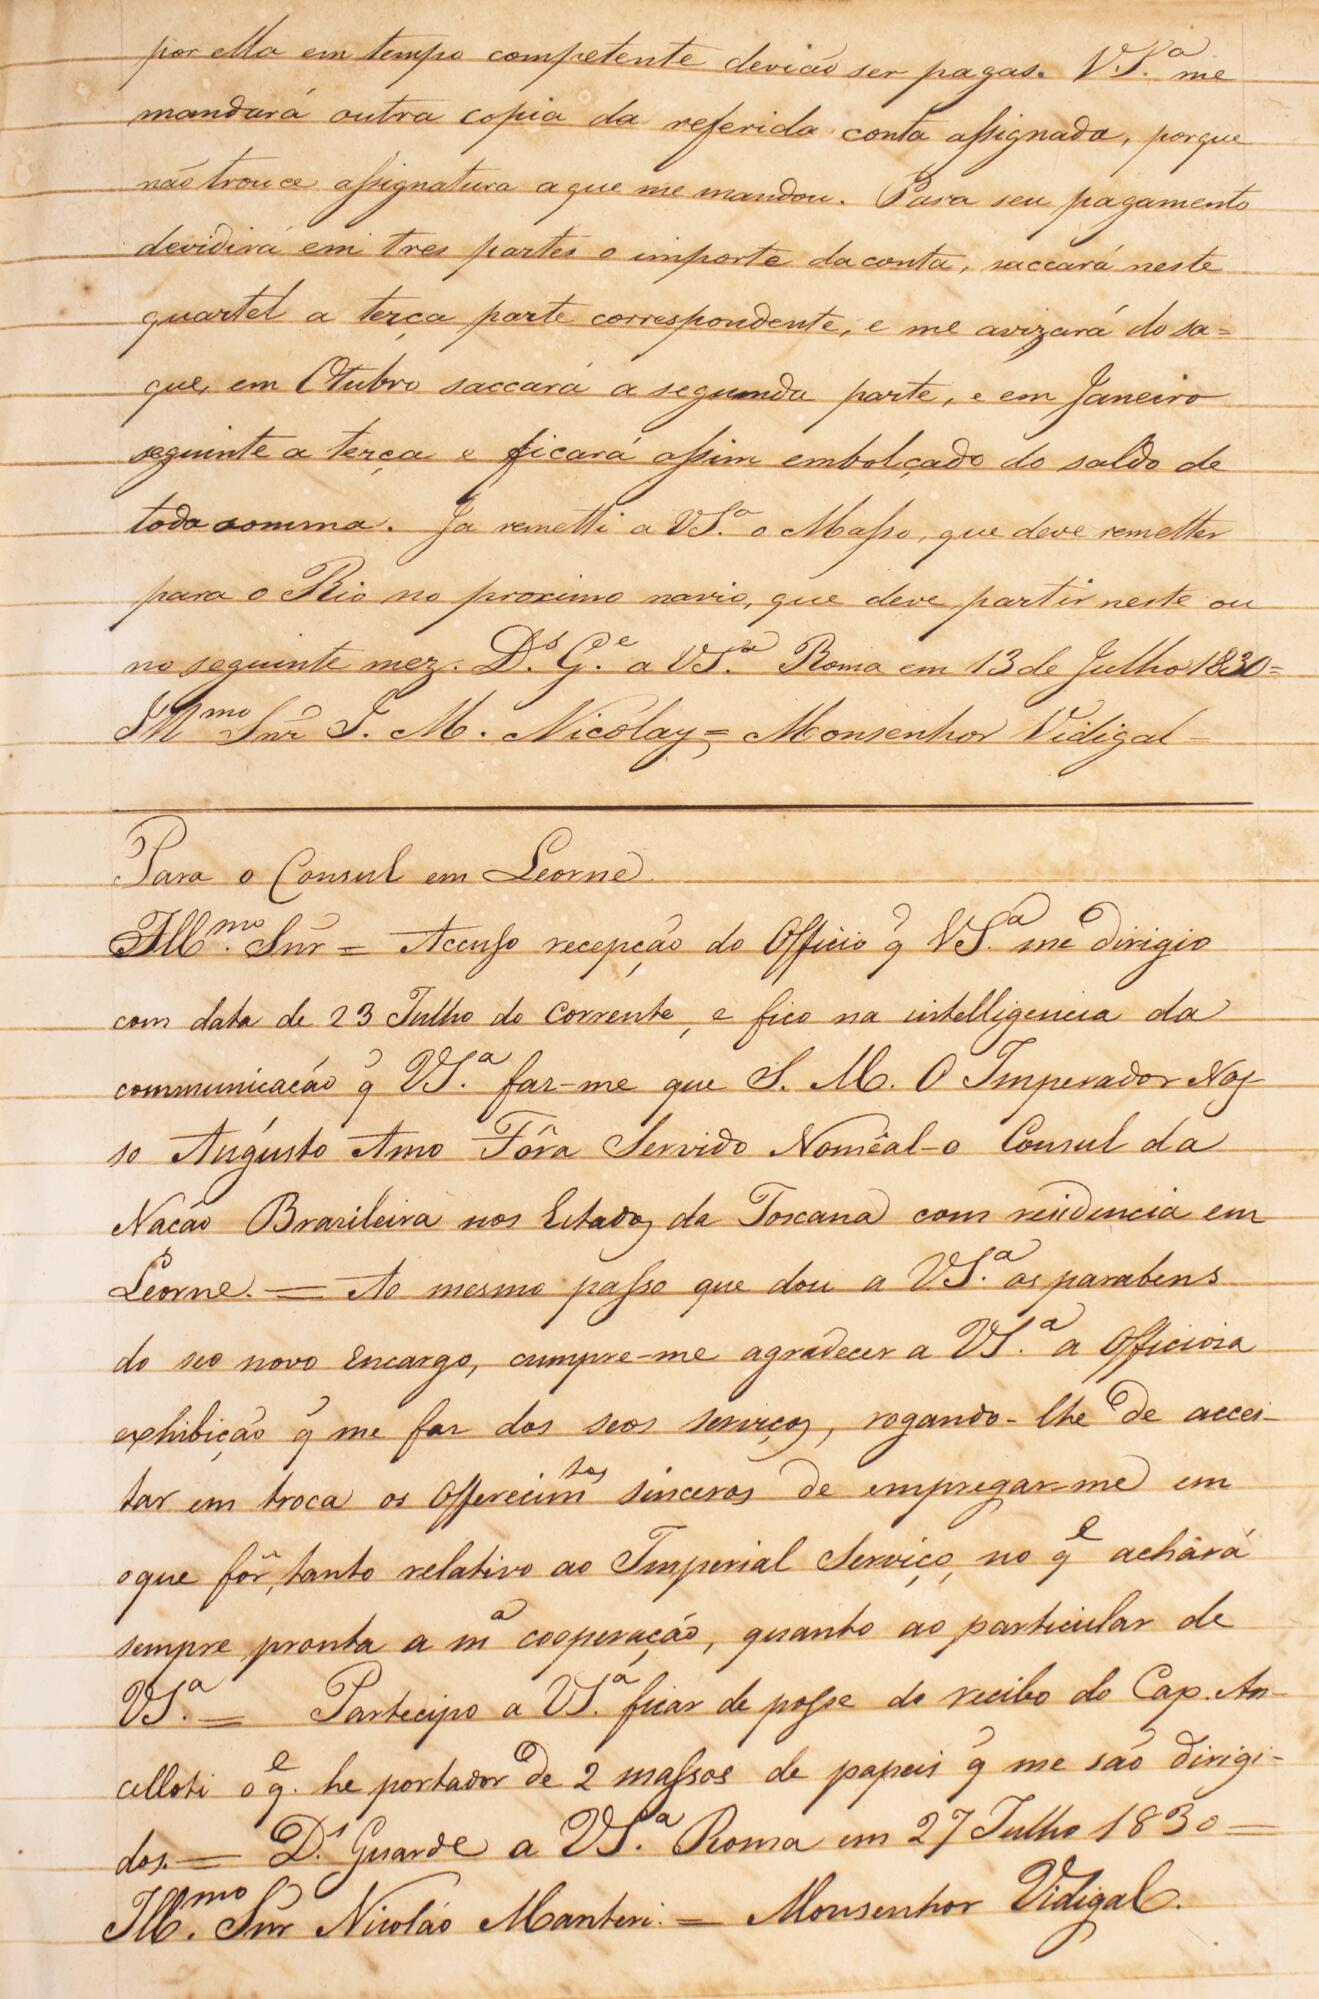 por ella em tempo competente devião ser pagas. VS.ª me
mandará outra copia da referida conta assignada, porque
não trouce assignatura a que me mandou. Para seu pagamento
devidirá em tres partes o importe da conta, saccará neste
quartel a terça parte correspondente, e me avizará do sa=
que, em Otubro saccará a segunda parte, e em Janeiro
seguinte a terça e ficará assim embolçado do saldo de
toda somma. Ja remetti a VS.ª o Masso, que deve remetter
para o Rio no proximo navio, que deve partir neste ou
no seguinte mez. D.s G.e a VS.ª Roma em 13 de Julho 1830=
Illmo Snr̃ J. M. Nicolay= Monsenhor Vidigal-
Para o Consul em Leorne.
Ill.mo Snr̃ = Accuso recepção do Officio q̃ VS.ª me dirigio
com data de 23 Julho do corrente, e fico na intelligencia da
communicacáo q̃ VS.ª faz-me que S. M. O Imperador Nos-
so Augústo Amo Fôra Servido Nomêal-o Consul da
Nacáo Brazileira nos Estados da Toscana com residencia em
Leorne. = Ao mesmo passo que dou a VS.ª os parabens
do seo novo Encargo, cumpre-me agradecer a VS.ª a Officioza
exhibição q̃ me faz dos seos serviços, rogando-lhe de accei-
tar em troca os Offerecimtos sinceros de empregar-me em
oque fôr, tanto relativo ao Imperial Serviço, no qe achará
sempre pronta a mª cooperação, quanto ao particular de
VS.ª = Partecipo a VS.ª ficar de posse do recibo do Cap. An-
celloti o qe. he portador de 2 massos de papeis q̃ me são dirigi-
dos. = D.s Guarde a VS.ª Roma em 27 Julho 1830 =
Ill.mo Snr̃ Nicoláo Manteri. = Monsenhor Vidigal.